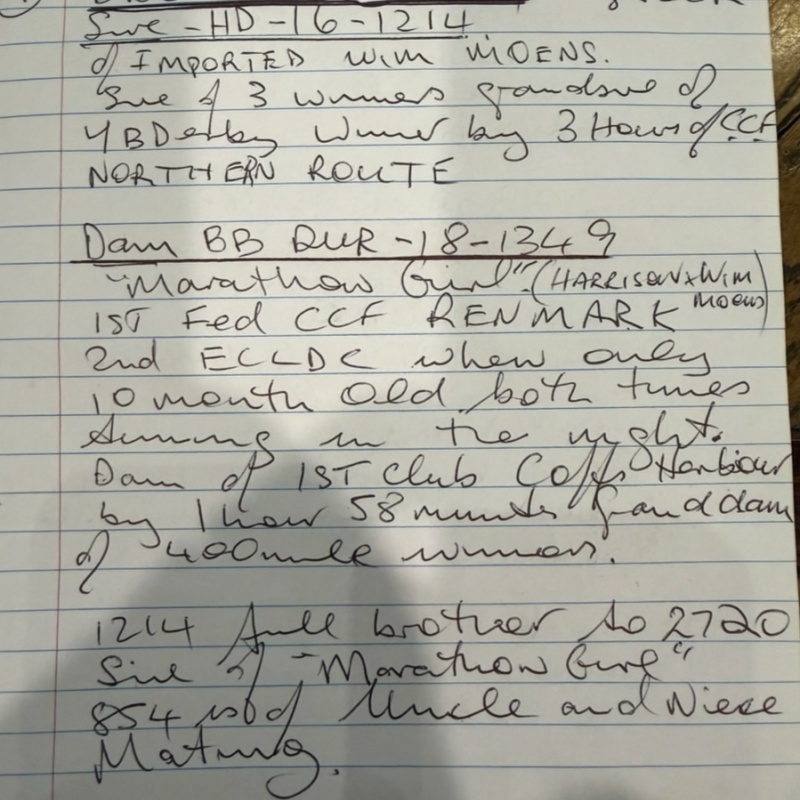 Sire - HD - 16 - 1214
of IMPORTED WIM MOENS.
Sire of 3 winners grandsire of
YBDerby Winner by 3 Hours of CCF
NORTHERN ROUTE
Dam BB DUR - 18 - 1349
"Marathon Girl" (HARRISON x WIM MOENS)
1ST Fed CCF RENMARK
2nd ECLDC when only
10 month old both times
in the night.
Dam of 1ST Club Coffs Harbour
by 1 hour 58 minutes Grand dam
of 400 mile winners.
1214 full brother to 2720
Sire of "Marathon Girl"
854 is of Uncle and Niese
Mating.